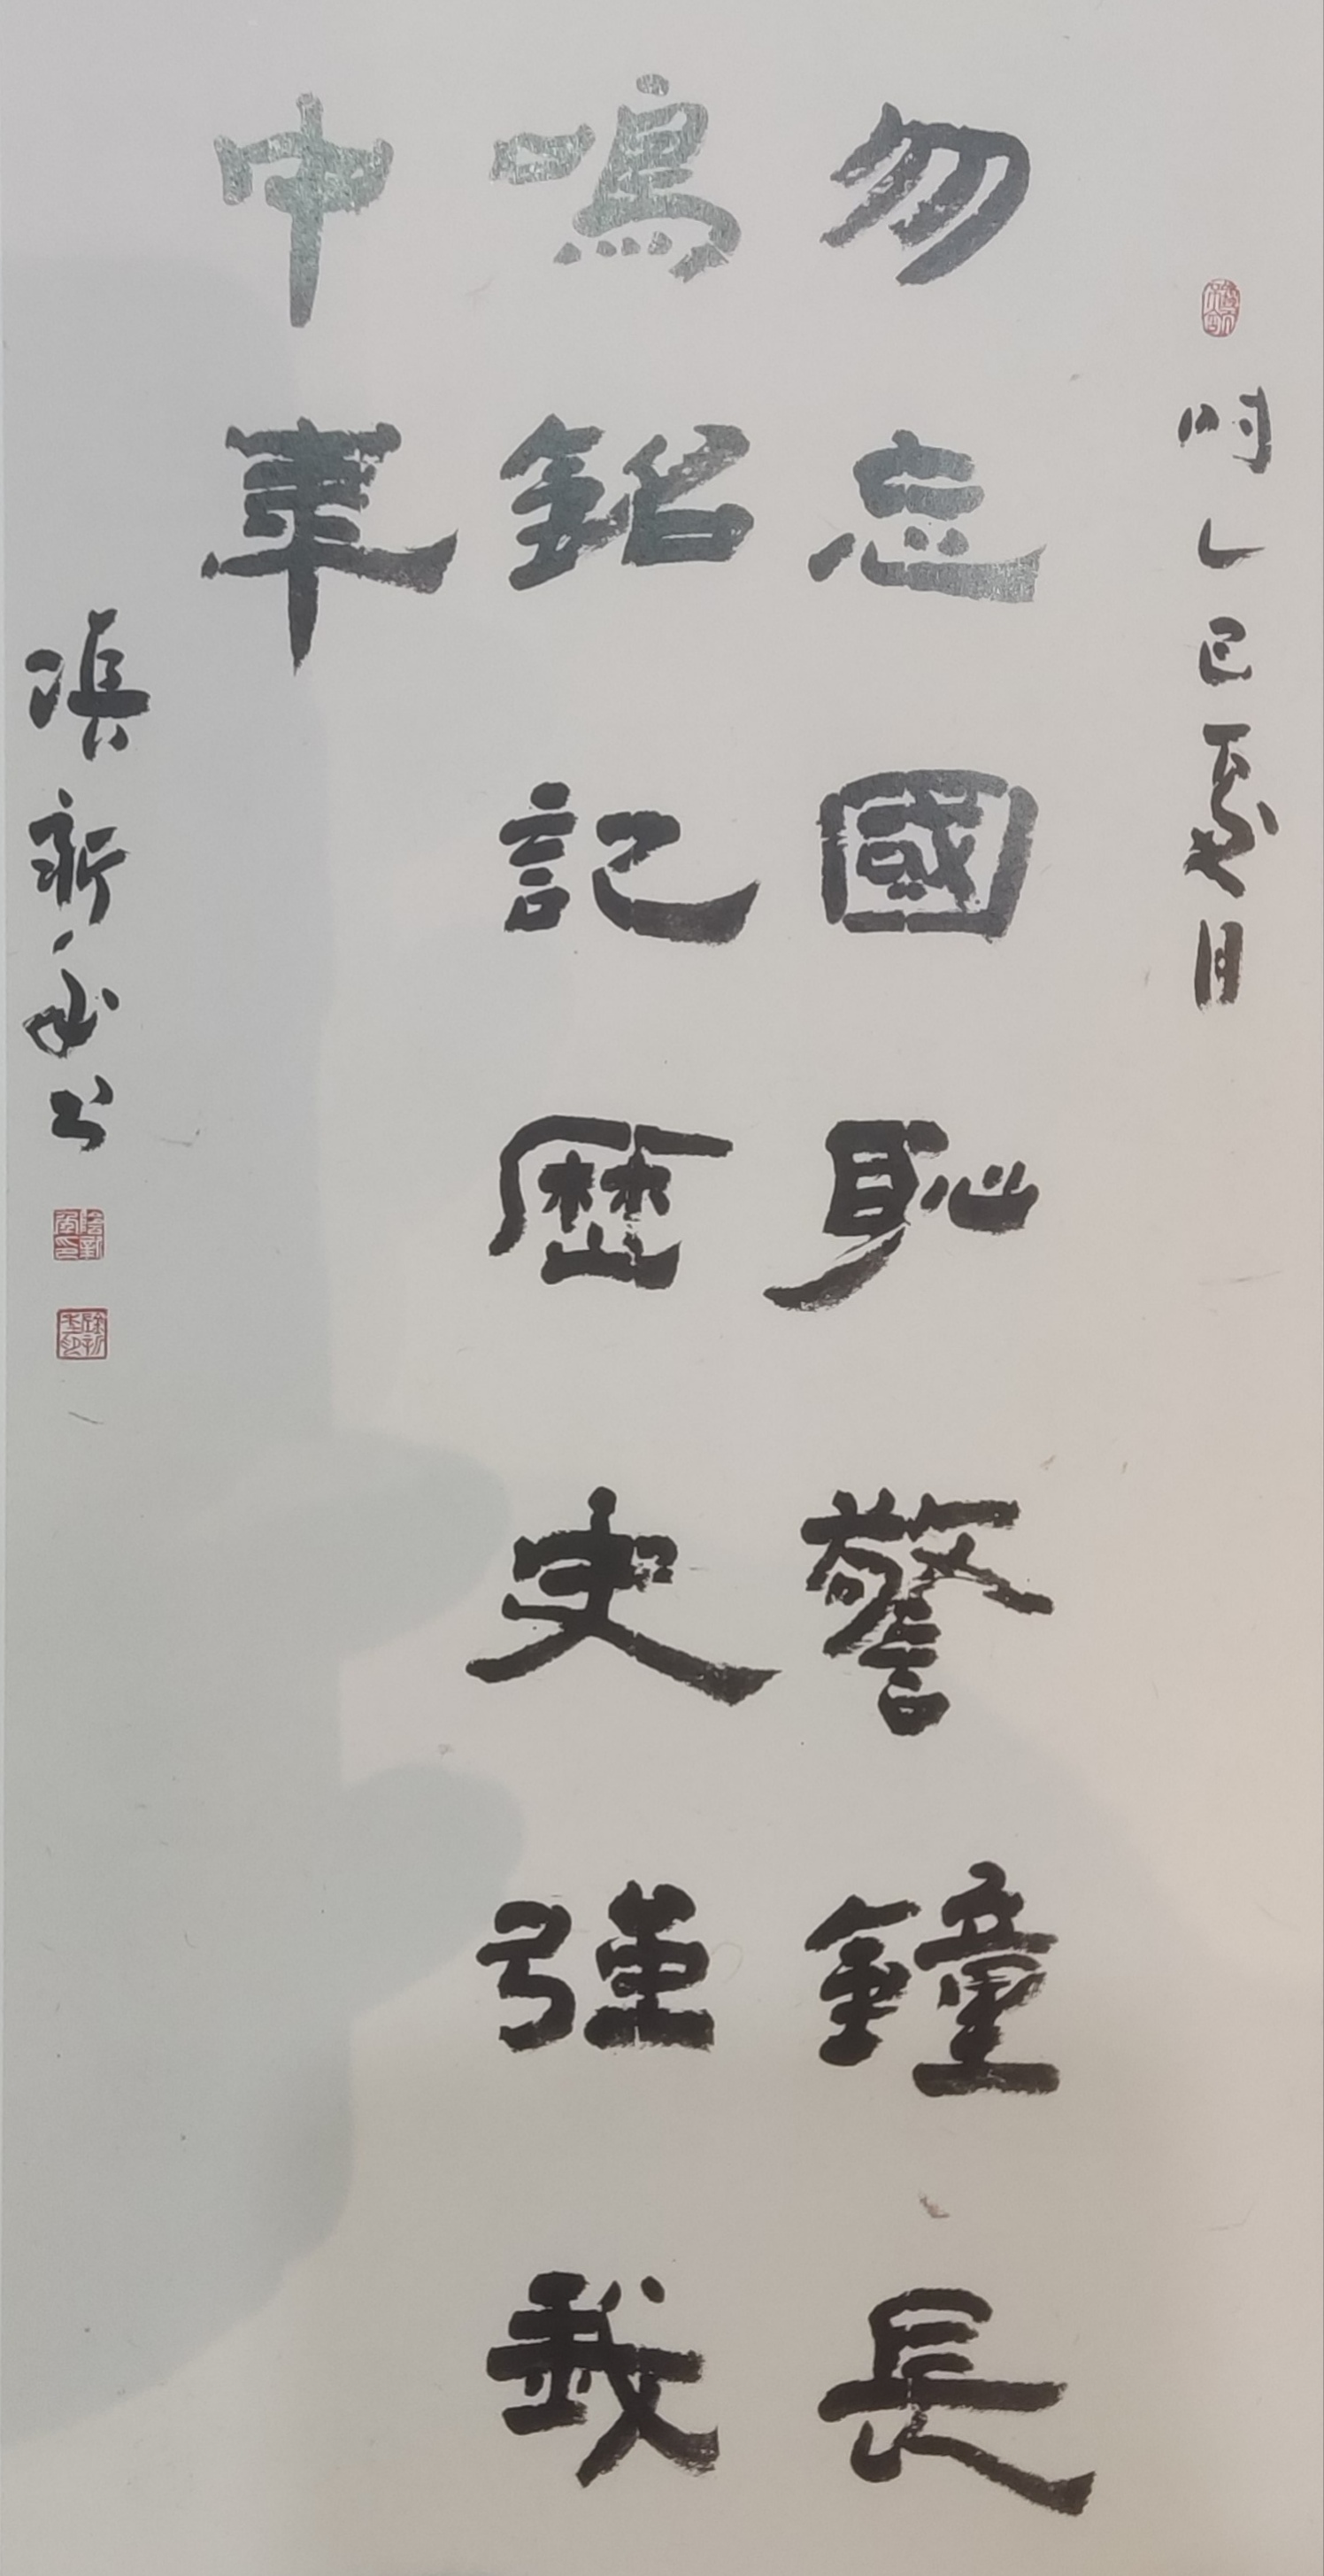 時乙巳夏月
勿忘國恥警鐘長
鳴銘記歷史強我
中華
新
書